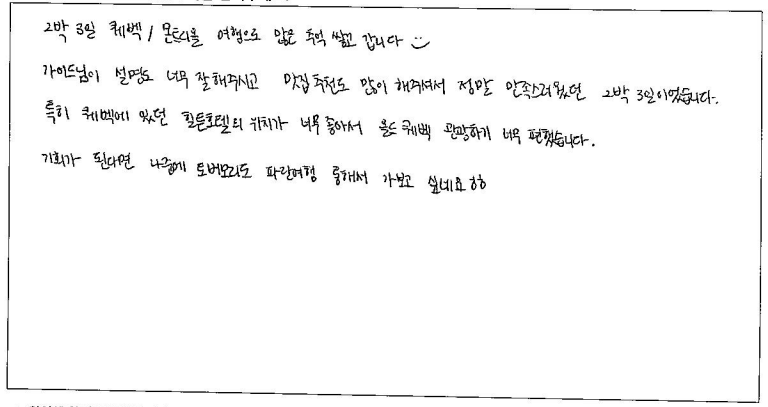 2박 3일 퀘벡 / 몬트리올 여행으로 많은 추억 쌓고 갑니다
가이드님이 설명도 너무 잘해주시고 맛집 추천도 많이 해주셔서 정말 만족스러웠던 2박 3일이었습니다.
특히 퀘벡에 있던 힐튼호텔의 위치가 너무 좋아서 올드 퀘벡 관광하기 너무 편했습니다.
기회가 된다면 나중에 토버모리도 파란여행 통해서 가보고 싶네요 ㅎㅎ